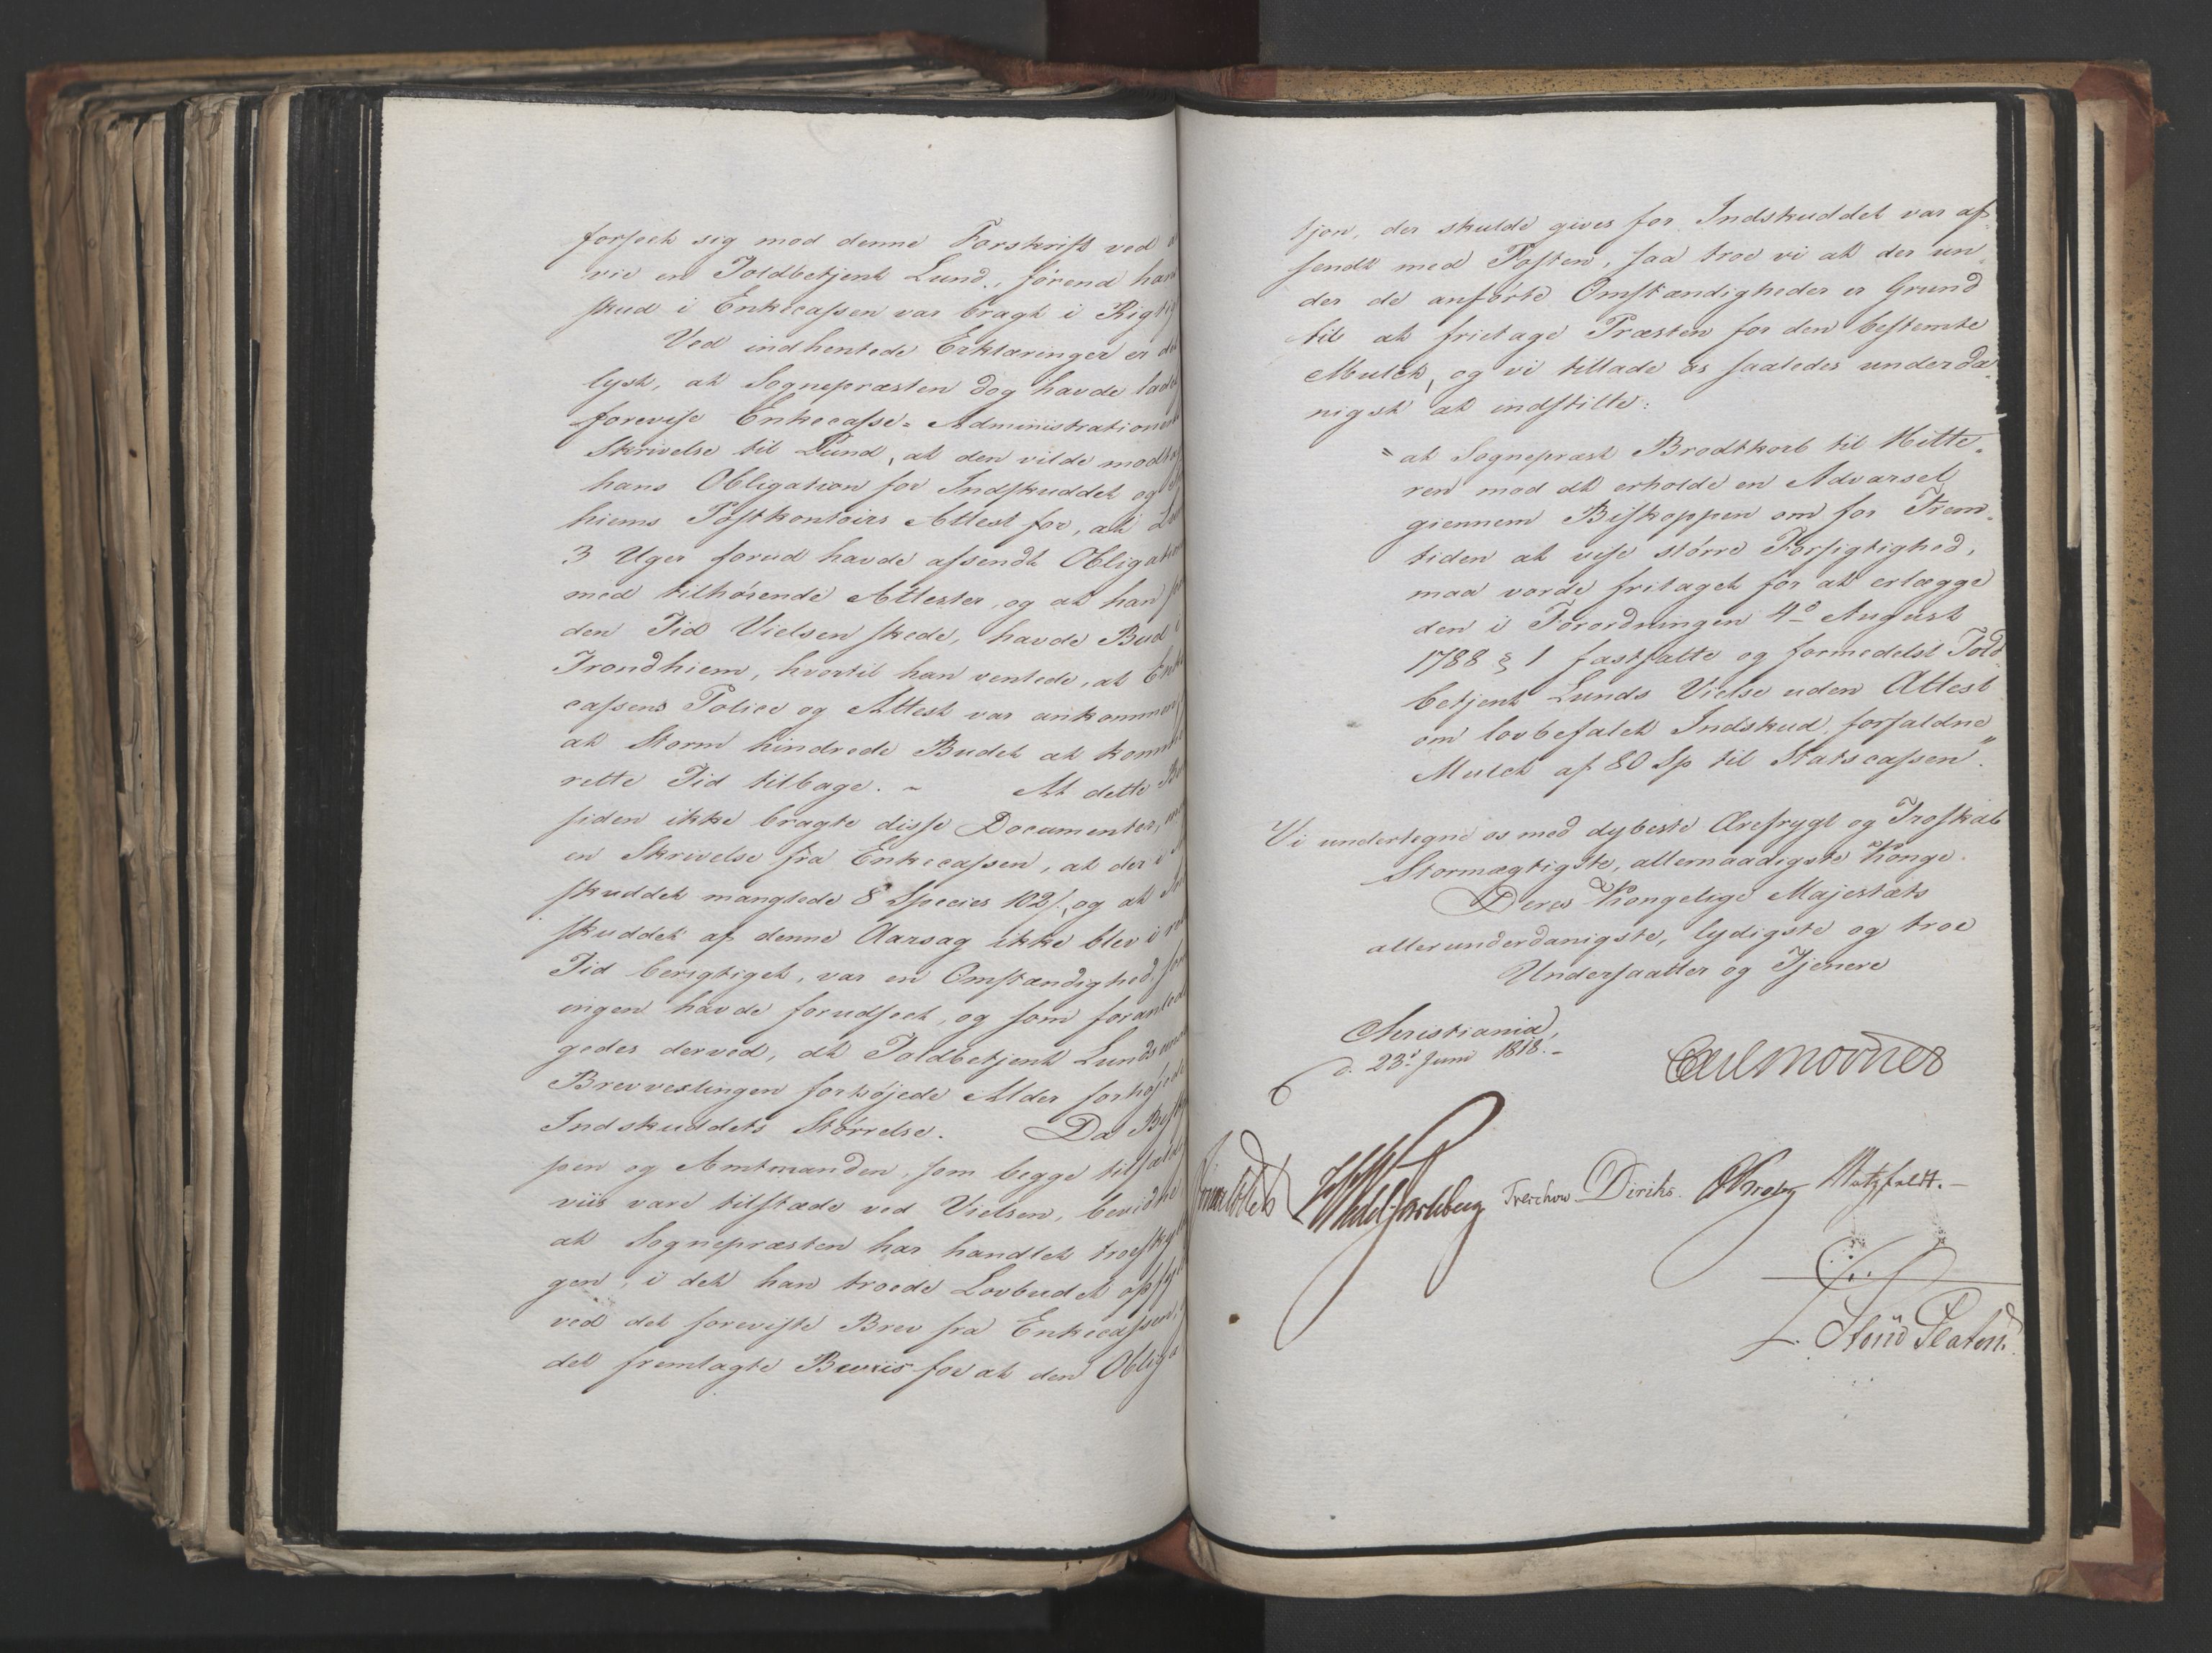 forseet sig mod denne Forskrift ved
vie en Toldbetjent Lund, førend hans
skud i Enkecassen var bragt i Rigtig
Ved indhentede Erklæringer er det
lyst, at Sognepræsten dog havde ladet
forevise Enkecasse-Administrationens
Skrivelse til Lund, at den vilde modta
hans Obligation for Indskuddet og
hiems Postkontoirs Attest for, at
3 Uger forud havde afsendt Obligation
med tilhørende Attester, og at han
den Tid Vielsen skede, havde Bud i
Trondhiem, hvortil han ventede, at Enke
cassens Police og Attest var ankommen
at Storm hindrede Budet at komme
rette Tid tilbage. - At dette Bud
siden ikke bragte disse Documenter, men
en Skrivelse fra Enkecassen, at der i
skuddet manglede 8 Species 102/, og at
skuddet af denne Aarsag ikke blev i
Tid berigtiget, var en Omstændighed, som
ingen havde forudseet, og som foranled
gedes derved, at Toldbetjent Lunds
Brevvexlingen forhøjede Alder forhøjede
Indskuddets Størrelse. Da Bisk
pen og Amtmanden, som begge tilfældig
viis vare tilstæde ved Vielsen, bevidne
at Sognepræsten har handlet troeskyl
gen, i det han troede Lovbudet opfyldt
ved det foreviste Brev fra Enkecassen,
det fremlagte Beviis for at den Obliga
tjon, der skulde gives for Indskuddet var af-
sendt med Posten, saa troe vi at der un-
der de anførte Omstændigheder er Grund
til at frietage Præsten for den bestemte
Mulct, og vi tillade os saaledes underda-
nigst at indstille:
"at Sognepræst Brodtkorb til Hitte-
ren mod at erholde en Advarsel
giennem Biskoppen om for Frem-
tiden at vise større Forsigtighed,
maa vorde fritaget for at erlægge
den i Forordningen 4de August
1788 § 1 fastsatte og formedelst Told-
betjent Lunds Vielse uden Attest
om lovbefalet Indskud, forfaldne
Mulct af 80 Sp til Statscassen".
Vi undertegne os med dybeste Ærefrygt og Troskab
Stormægtigste, allernaadigste Konge
Deres Kongelige Majestæts
allerunderdanigste, lydigste og troe
Undersaatter og Tjenere
Christiania,
d. 23d Juni 1818.-
Carl Mörner
Sommerhielm HWedel Jarlsberg Treschow Diriks. Krebs Motzfeldt.-
L. Stoud Platou